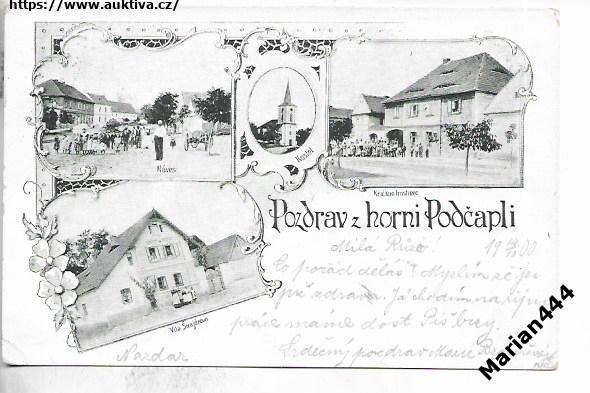 https://www.auktiva.cz/
Náves
Kostel
Králův hostinec
Pozdrav z horni Podčapli
Milá Růžo! 19 00
Co pořád děláš? Myslím že jsi
již zdráva. Já chodím na
práce máme dost Piš brzy.
Srdečný pozdrav Marie
Vila
Nazdar
Marian444